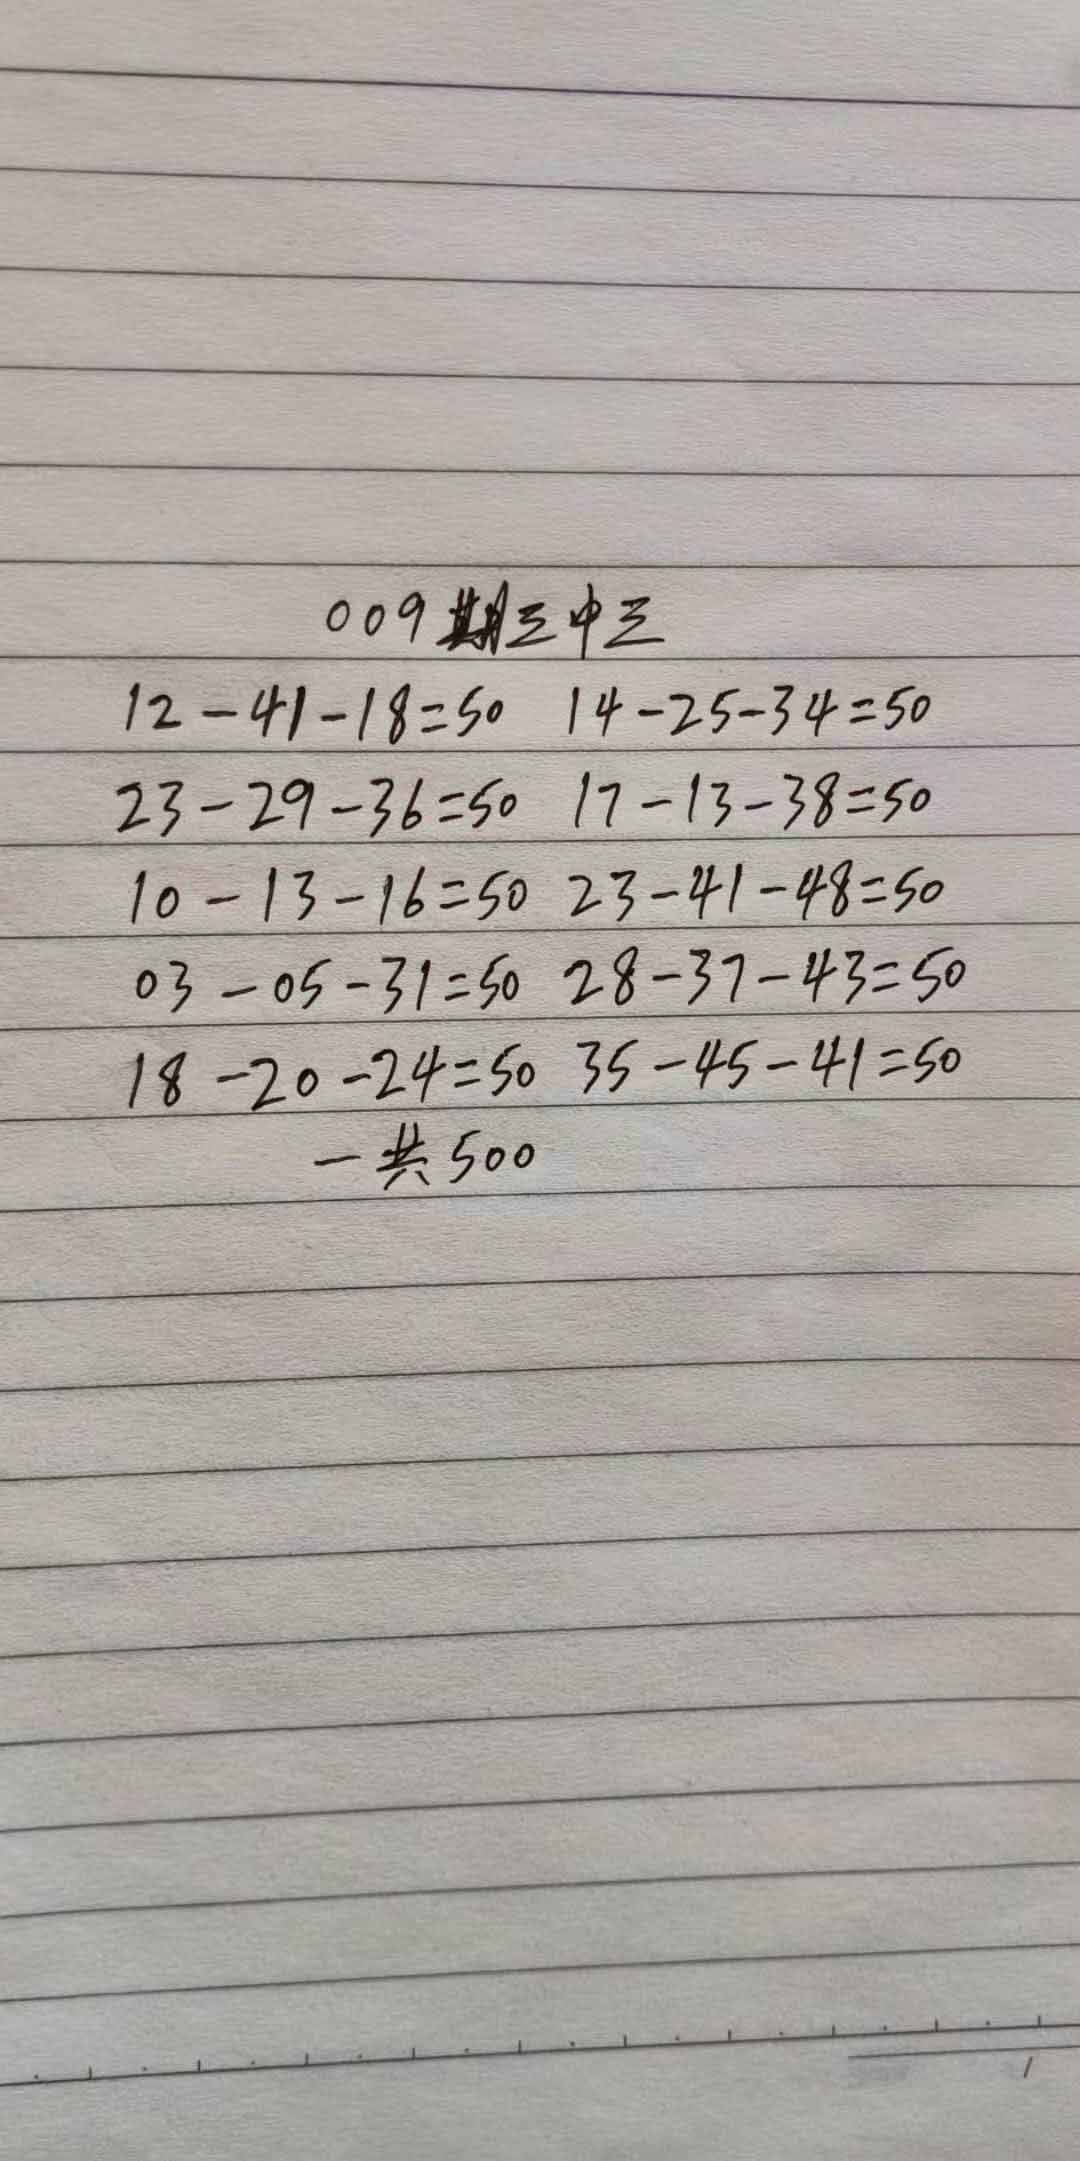 009期三中三
12-41-18=50 14-25-34=50
23-29-36=50 17-13-38=50
10-13-16=50 23-41-48=50
03-05-31=50 28-37-43=50
18-20-24=50 35-45-41=50
一共500